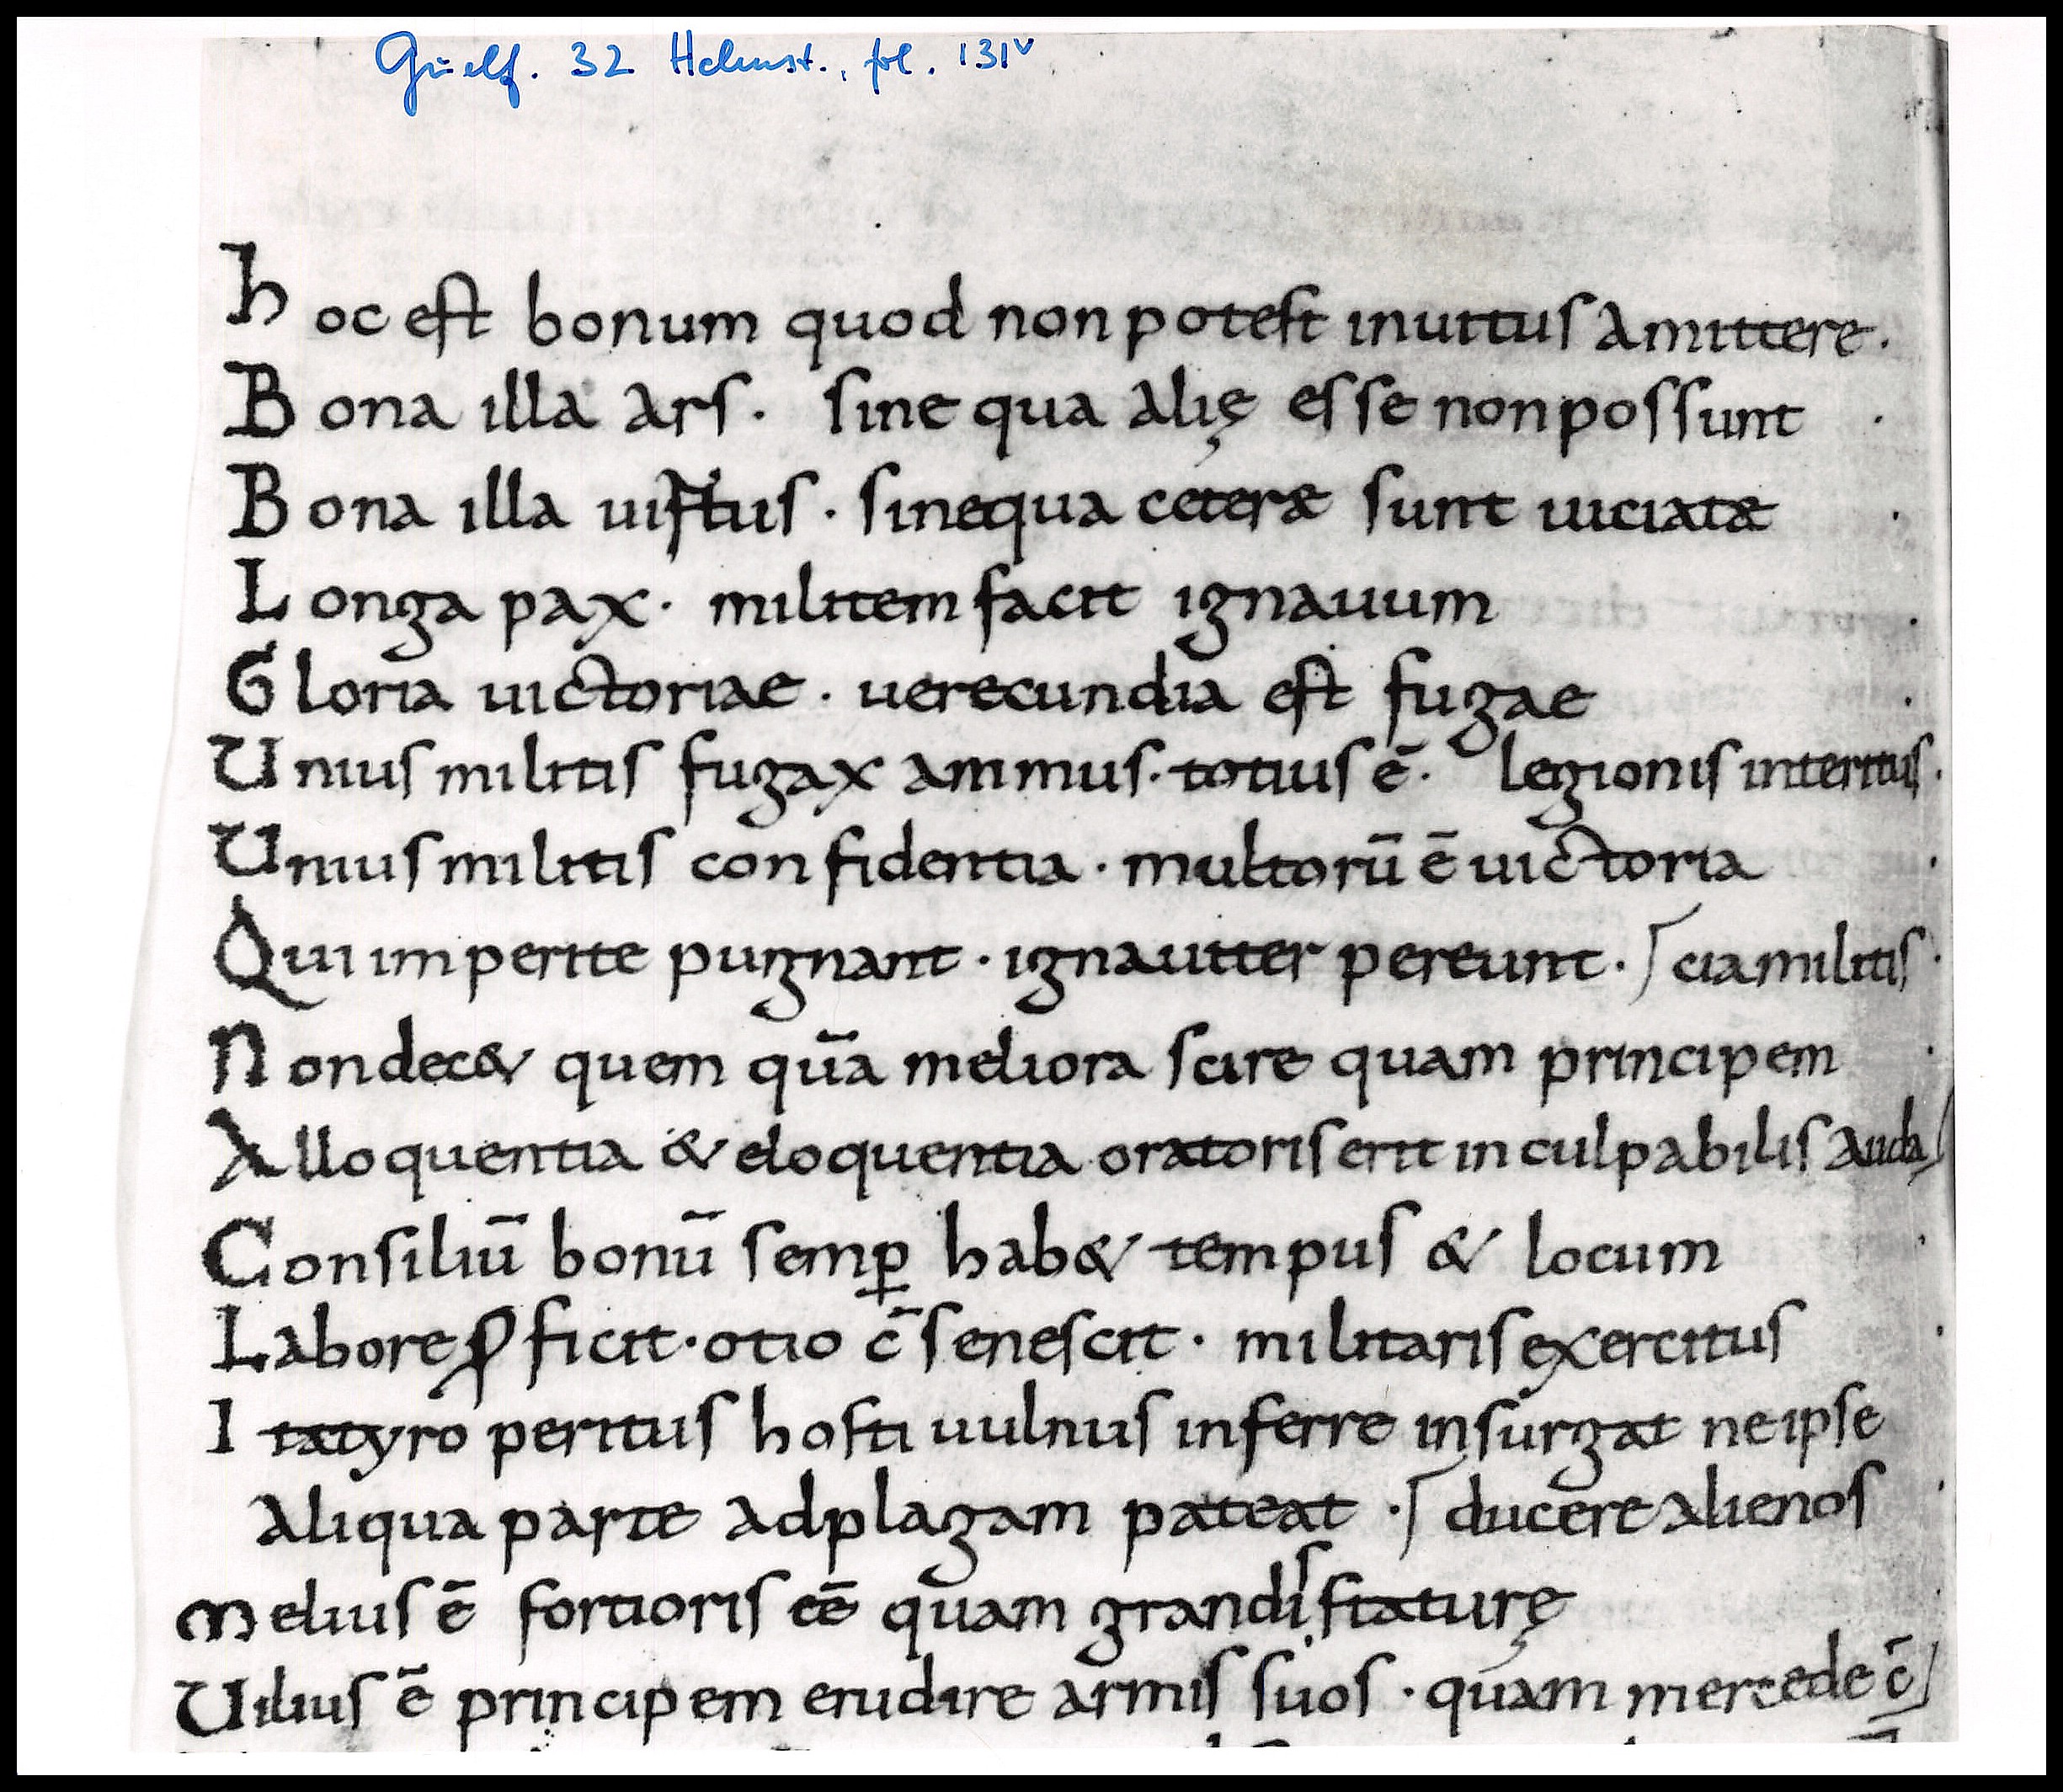 Guelf. 32 Helmst., fol. 131v
hoc est bonum quod non potest inuitus amittere.
Bona illa ars. sine qua alię esse non possunt.
Bona illa uirtus. sine qua ceteræ sunt uiciatæ.
Longa pax. militem facit ignauum.
Gloria uictoriae. uerecundia est fugae.
Unius militis fugax animus. totius ē. legionis interitus.
Unius militis confidentia. multorū ē uictoria.
Qui imperite pugnant. ignauiter pereunt. ∫ cia militis.
Non dec& quem quā meliora scire quam principem.
Alloquentia & eloquentia oratoris erit inculpabilis auda/
Consiliū bonū semꝑ hab& tempus & locum.
Labore ꝓficit. otio c̄senescit. militaris exercitus.
Ita tyro peritus hosti uulnus inferre insurgat ne ipse
aliqua parte ad plagam pateat. ∫ ducere alienos.
Melius ē fortioris eē quam grandis staturę
Uilius ē principem erudire armis suos. quam mercede c̄/